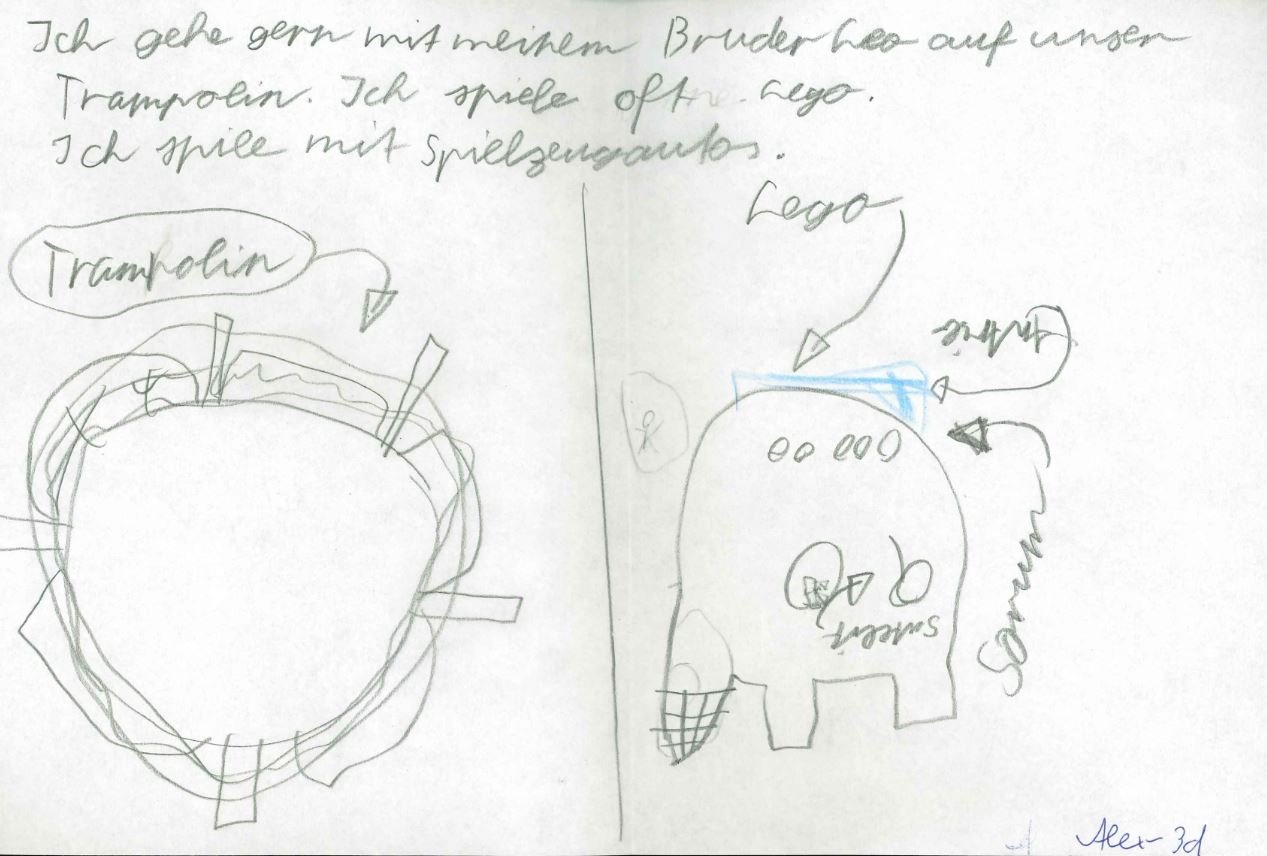 Ich gehe gern mit meinem Bruder Leo auf unser
Trampolin. Ich spiele oft Lego.
Ich spile mit Spielzeugautos.
Lego
Trampolin
Alex 3d